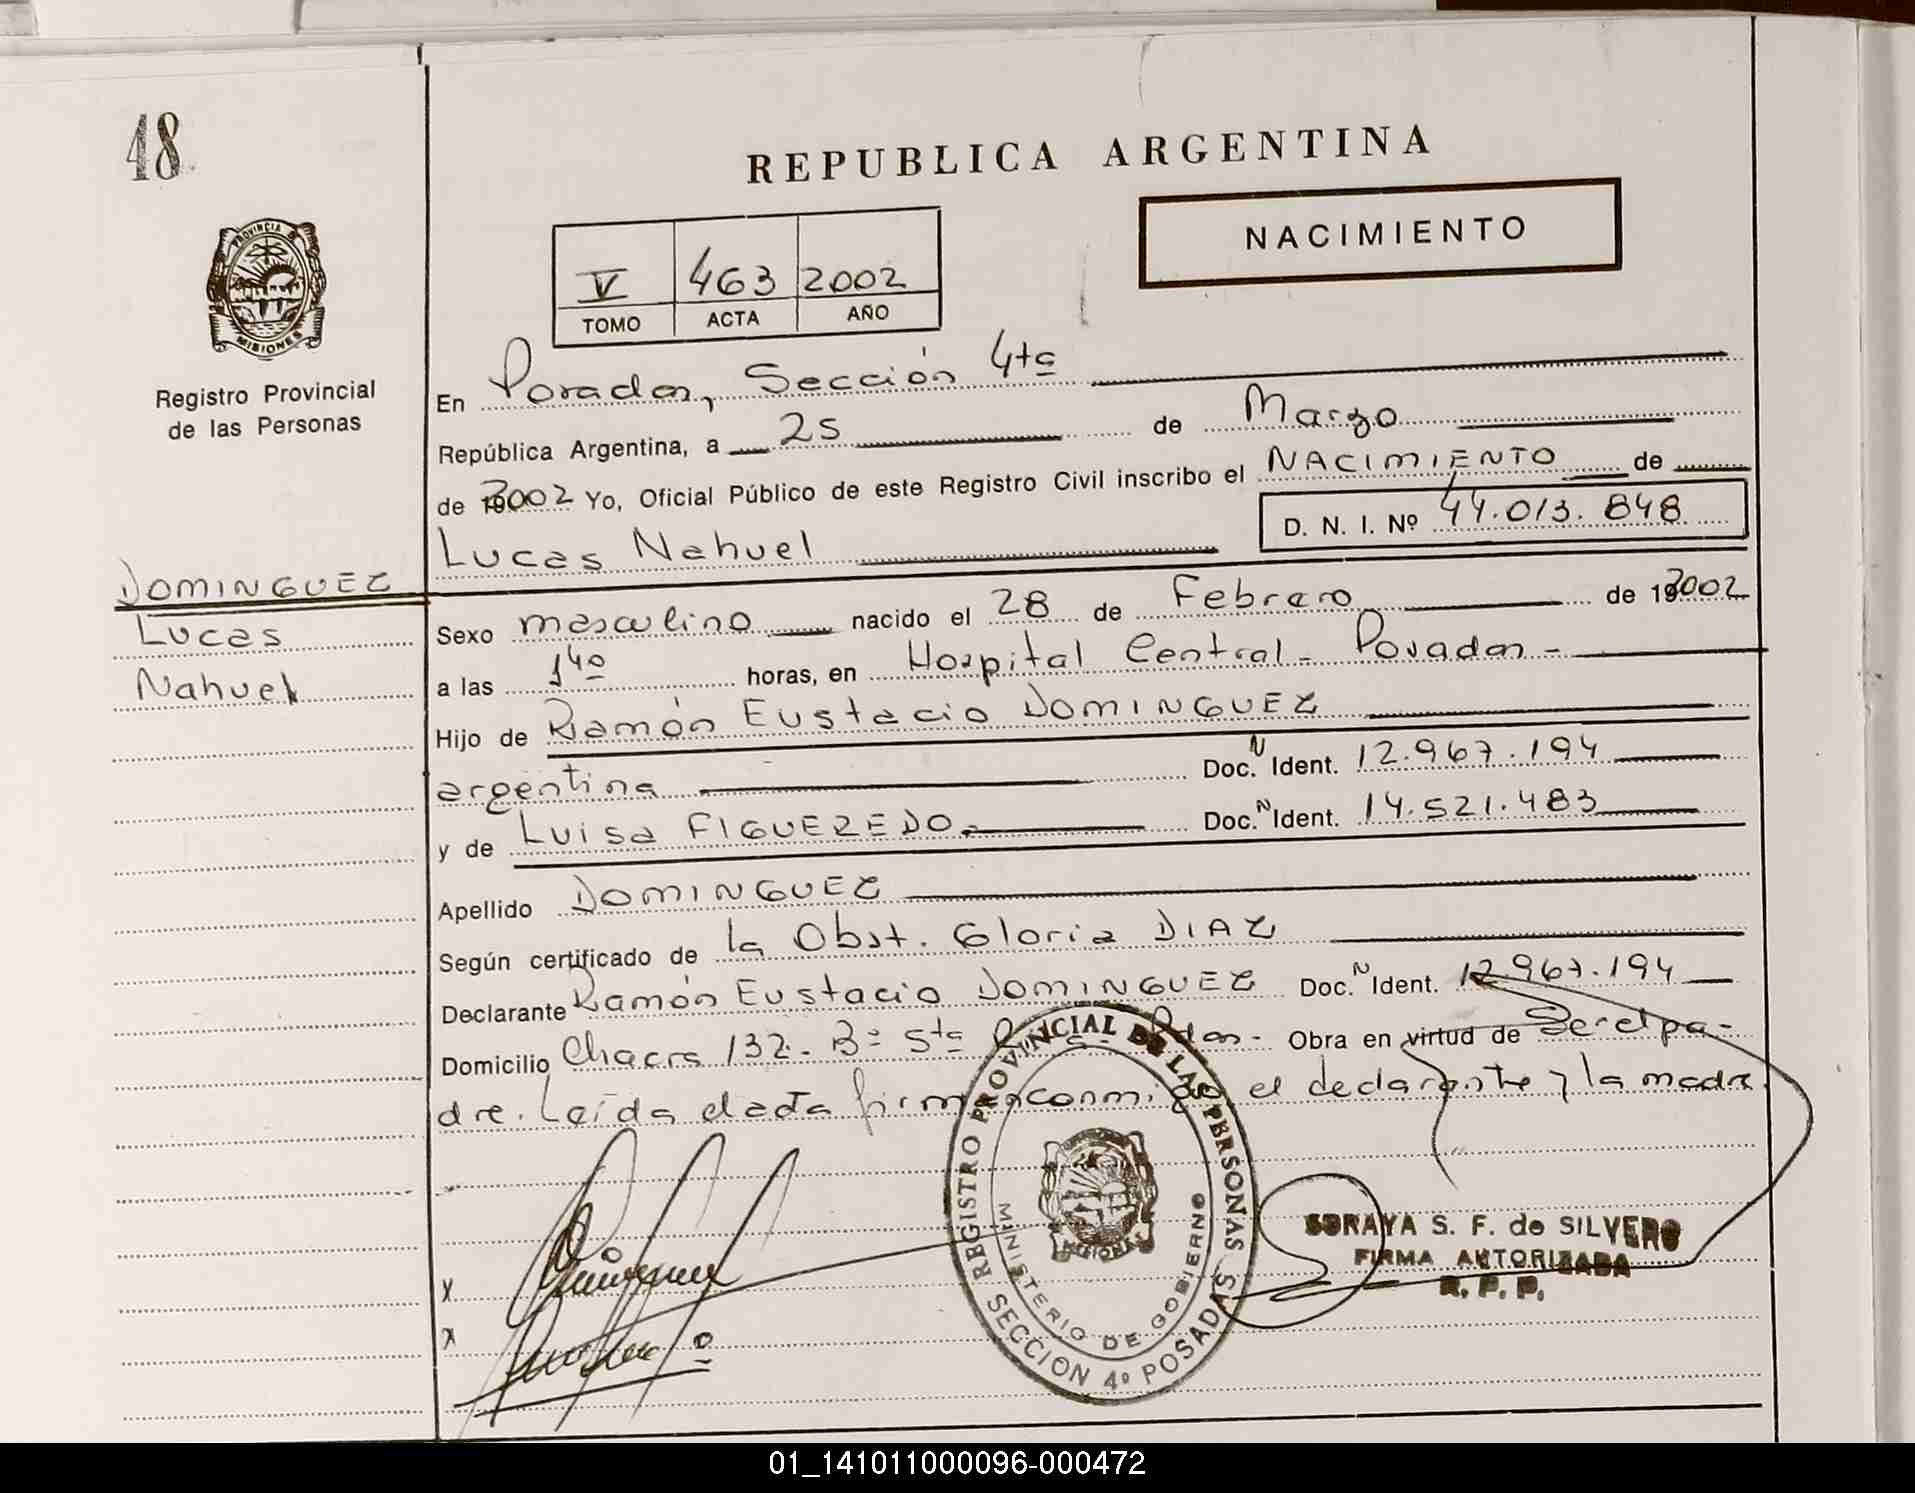 48
REPUBLICA ARGENTINA
NACIMIENTO
V 463 2002
TOMO ACTA AÑO
PROVINCIA DE MISIONES
Registro Provincial
de las Personas
En Posadas, Sección 4ta
República Argentina, a 25 de Marzo
de 2002 Yo, Oficial Público de este Registro Civil inscribo el NACIMIENTO de
D. N. I. Nº 44.013.848
Lucas Nahuel
DOMINGUEZ
Lucas
Nahuel
Sexo masculino nacido el 28 de Febrero de 2002
a las 140 horas, en Hospital Central - Posadas -
Hijo de Ramón Eustacio DOMINGUEZ
argentina Doc. N Ident. 12.967.194
y de Luisa FIGUEREDO. Doc. N Ident. 14.521.483
Apellido DOMINGUEZ
Según certificado de la Obst. Gloria DIAZ
Declarante Ramón Eustacio DOMINGUEZ Doc. N Ident. 12.967.194
Domicilio Chacra 132 - Bº Sta Pdas - Obra en virtud de Ser el pa-
dre. Leída el acta firman conmigo el declarante y la madre
REGISTRO PROVINCIAL DE LAS PERSONAS
MINISTERIO DE GOBIERNO
MISIONES
SECCION 4º POSADAS
SORAYA S. F. de SILVERO
FIRMA AUTORIZADA
R. P. P.
X
X
01_141011000096-000472